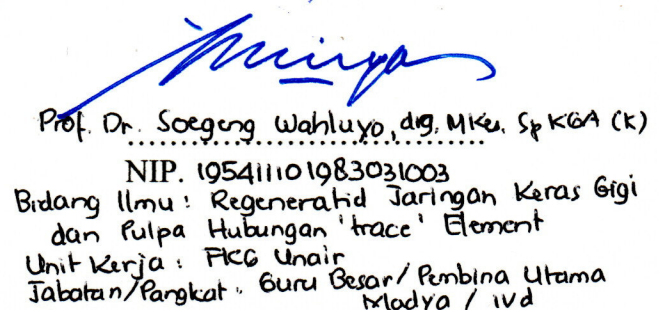 Prof. Dr. Soegeng Wahluyo, drg, MKes. Sp KGA (K)
NIP. 195411101983031003
Bidang Ilmu : Regeneratid Jaringan Keras Gigi
dan Pulpa Hubungan 'trace' Element
Unit Kerja : FKG Unair
Jabatan/Pangkat : Guru Besar/ Pembina Utama
Madya / IVd